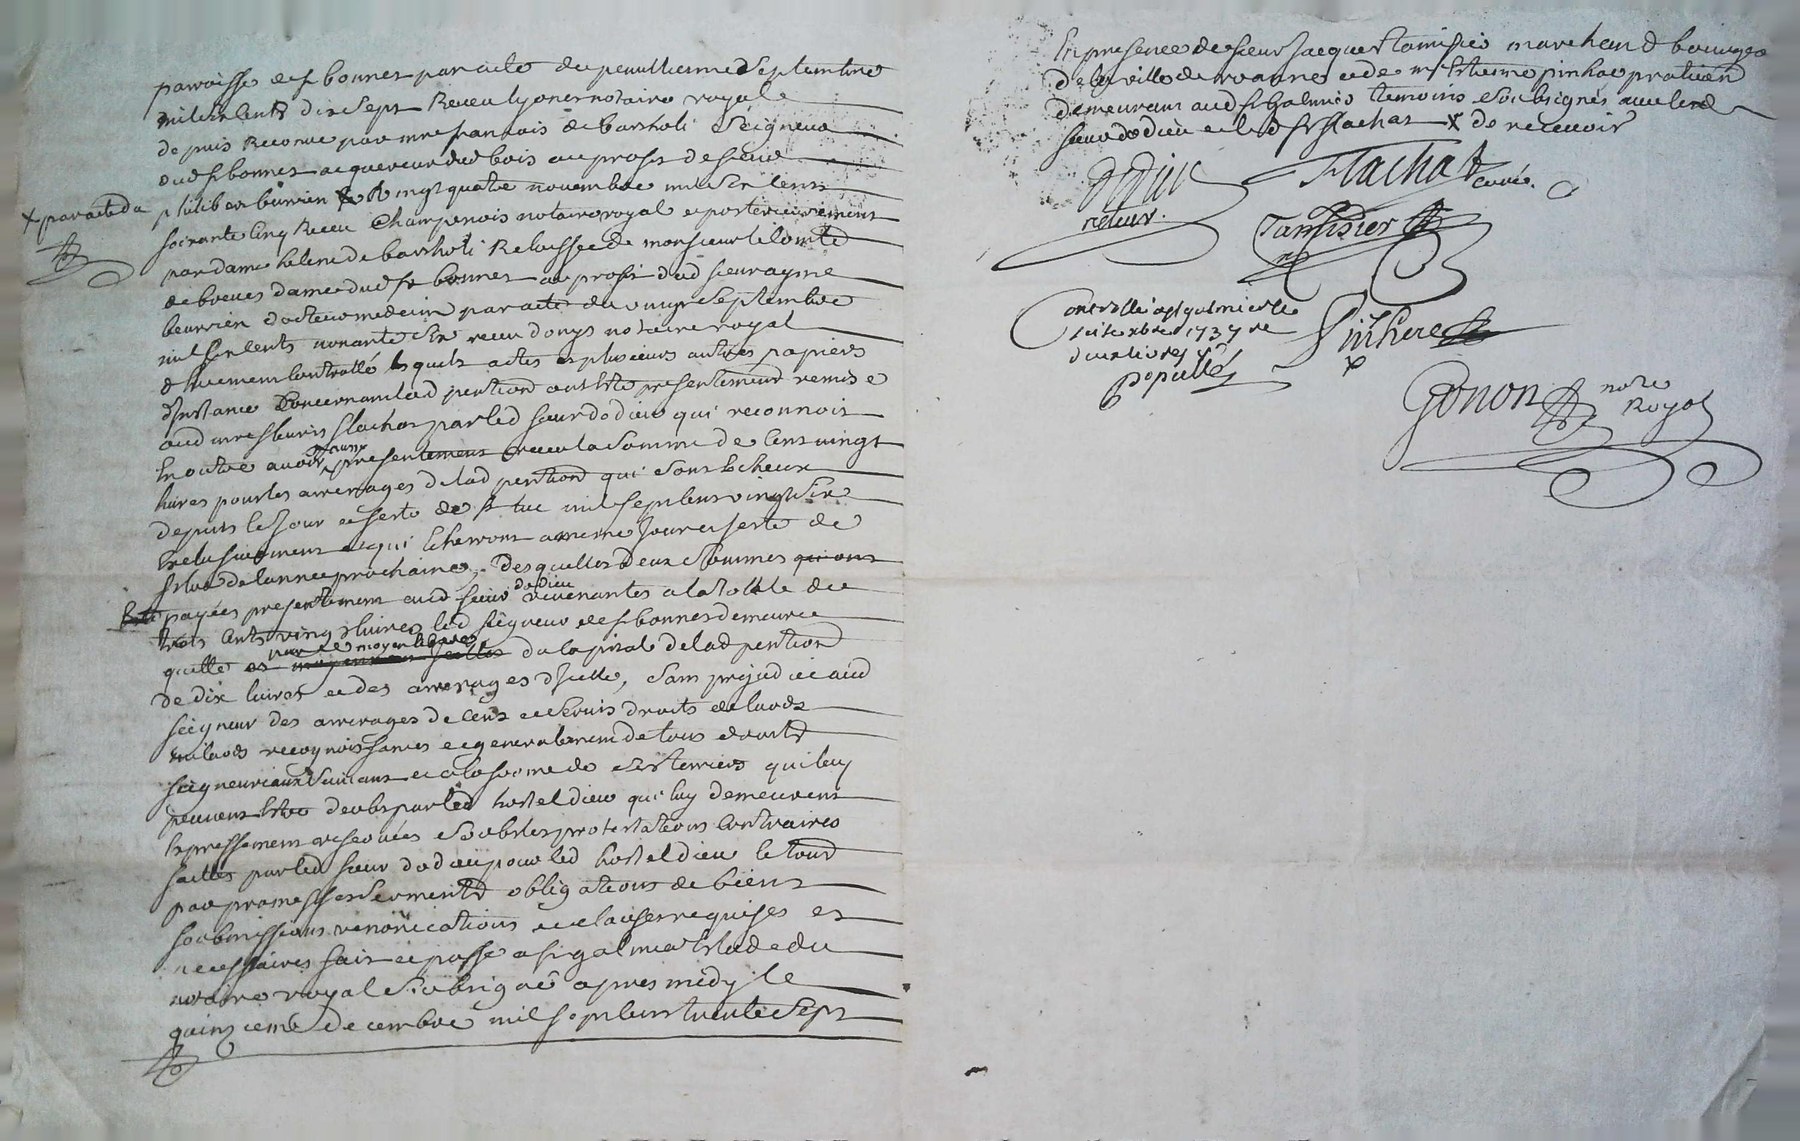 paroisse de st bonnet par acte du penultieme septembre
mil six cents dix sept Receu lyonet notaire royal
depuis Reconue par mre francois de bartholi Seigneur
dud st bonnet acquereur dud bois au profit de sieur
x par acte du
philibert beurrier x vingt quatre novembre mil six cents
soixante cinq Receu Champenois notaire royal et posterieurement
par dame helene de bartholi Relaissee de monsieur le comte
de dame dud st bonnet au profit dud sieur ayme
beurrier docteur medecin par acte du vingt septembre
mil six cents nonante six receu donys notaire royal
duement controllé lesquels actes et plusieurs autres papiers
d'instance concernant lad pention ont été presentement remis
aud mre fleuris flachat par led sieur dodieu qui reconnoit
en outre avoir presentement receu la somme de cent vingt
livres pour les arrerages de lad pention qui sont echeux
depuis le jour et feste de st luc mil sept cent vingt six
exclusivement et qui echerront a meme jour et feste de
st luc de l'année prochaine, desquelles deux sommes qui ont
payées presentement aud sieur dodieu revenantes a la totale de
trois cents vingt livres led seigneur de st bonnet demeure
quitte du capital de lad pention
de dix livres et des arrerages d'icelle, sans prejudice aud
seigneur des arrerages de cens et servis droits de laods
milaods recognoissances et generalement de tous droits
seigneuriaux suivant et a la forme de ses terriers qui luy
peuvent etre deubs par led hostel dieu qui luy demeurent
expressement reservées soubs les protestations contraires
faittes par led sieur dodieu pour led hostel dieu le tout
par promesses serments obligations de biens
soubmissions renonciations et clauses requises et
necessaires fait et passé a st galmier etude du
notaire royal soubsigné apres midy le
quinzieme decembre mil sept cents trente sept
En presence de sieur Jacques tamisier marchand bourgeois
de la ville de roanne et de mr praticien
demeurant aud st Galmier temoins soubsignés avec led
sieur dodieu et led sr flachat x de recevoir
Dodieu
recteur.
Flachat
curé.
Tamisier
Controllé a st galmier le
decembre 1737 Re
douze livres
Popullé
Pinhere
Gonon notre
Royal